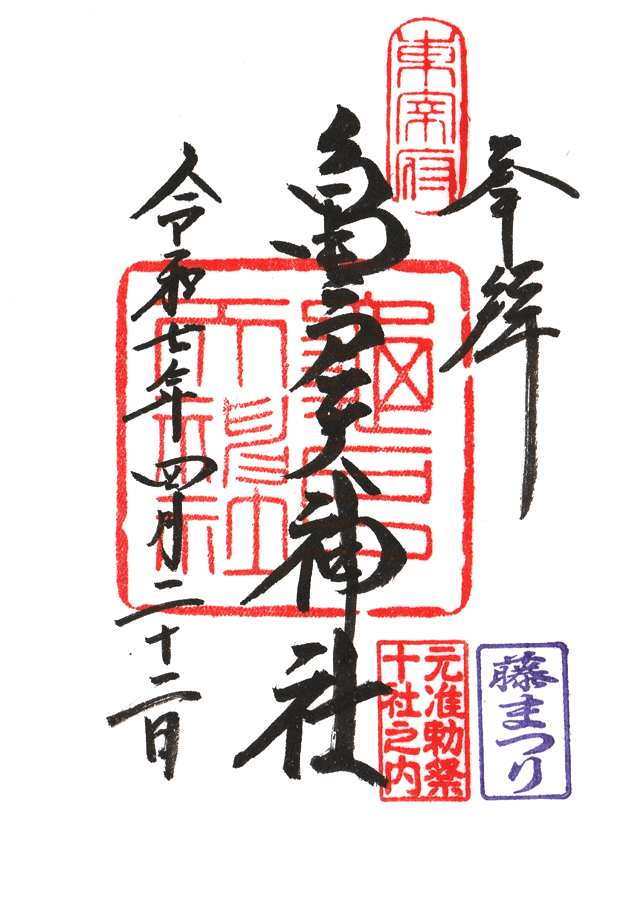 奉拝
東宰府
亀戸天神社
元准勅祭
十社之内
藤まつり
令和七年四月二十二日